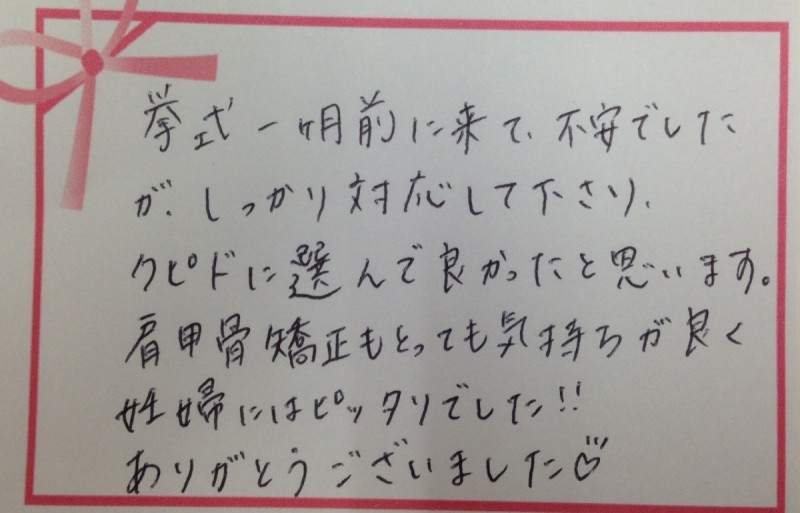 挙式一ヶ月前に来て、不安でした
が、しっかり対応して下さり、
クピドに選んで良かったと思います。
肩甲骨矯正もとっても気持ちが良く
妊婦にはピッタリでした!!
ありがとうございました♡